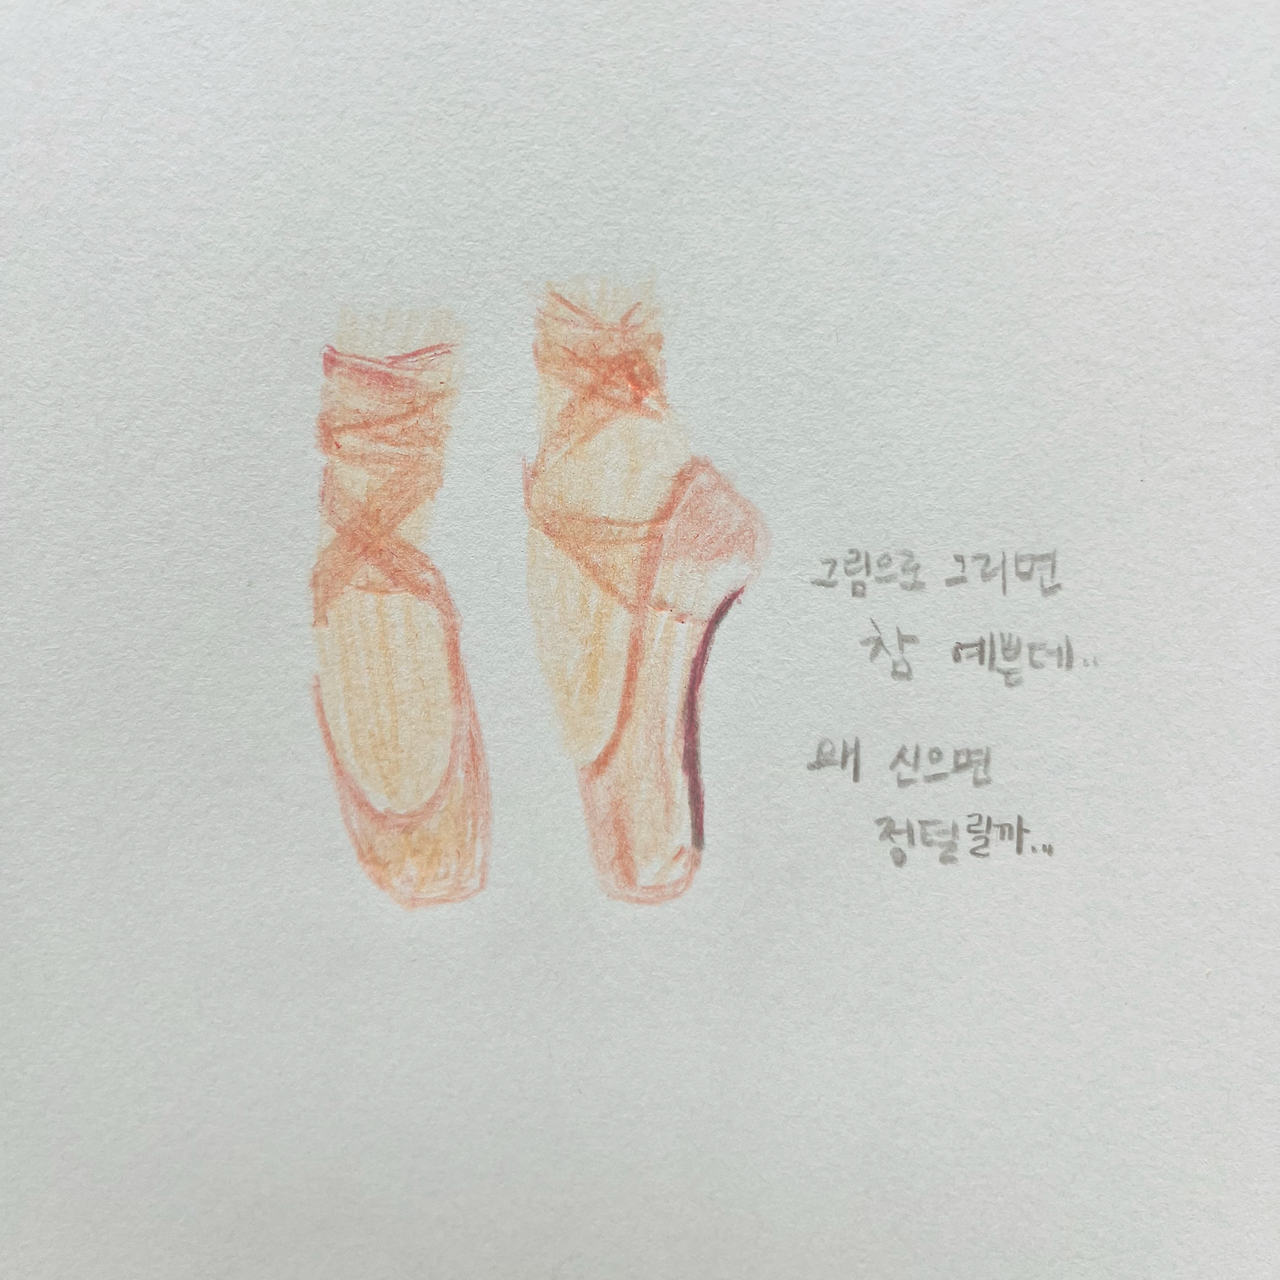 그림으로 그리면
참 예쁜데..
왜 신으면
정떨릴까...